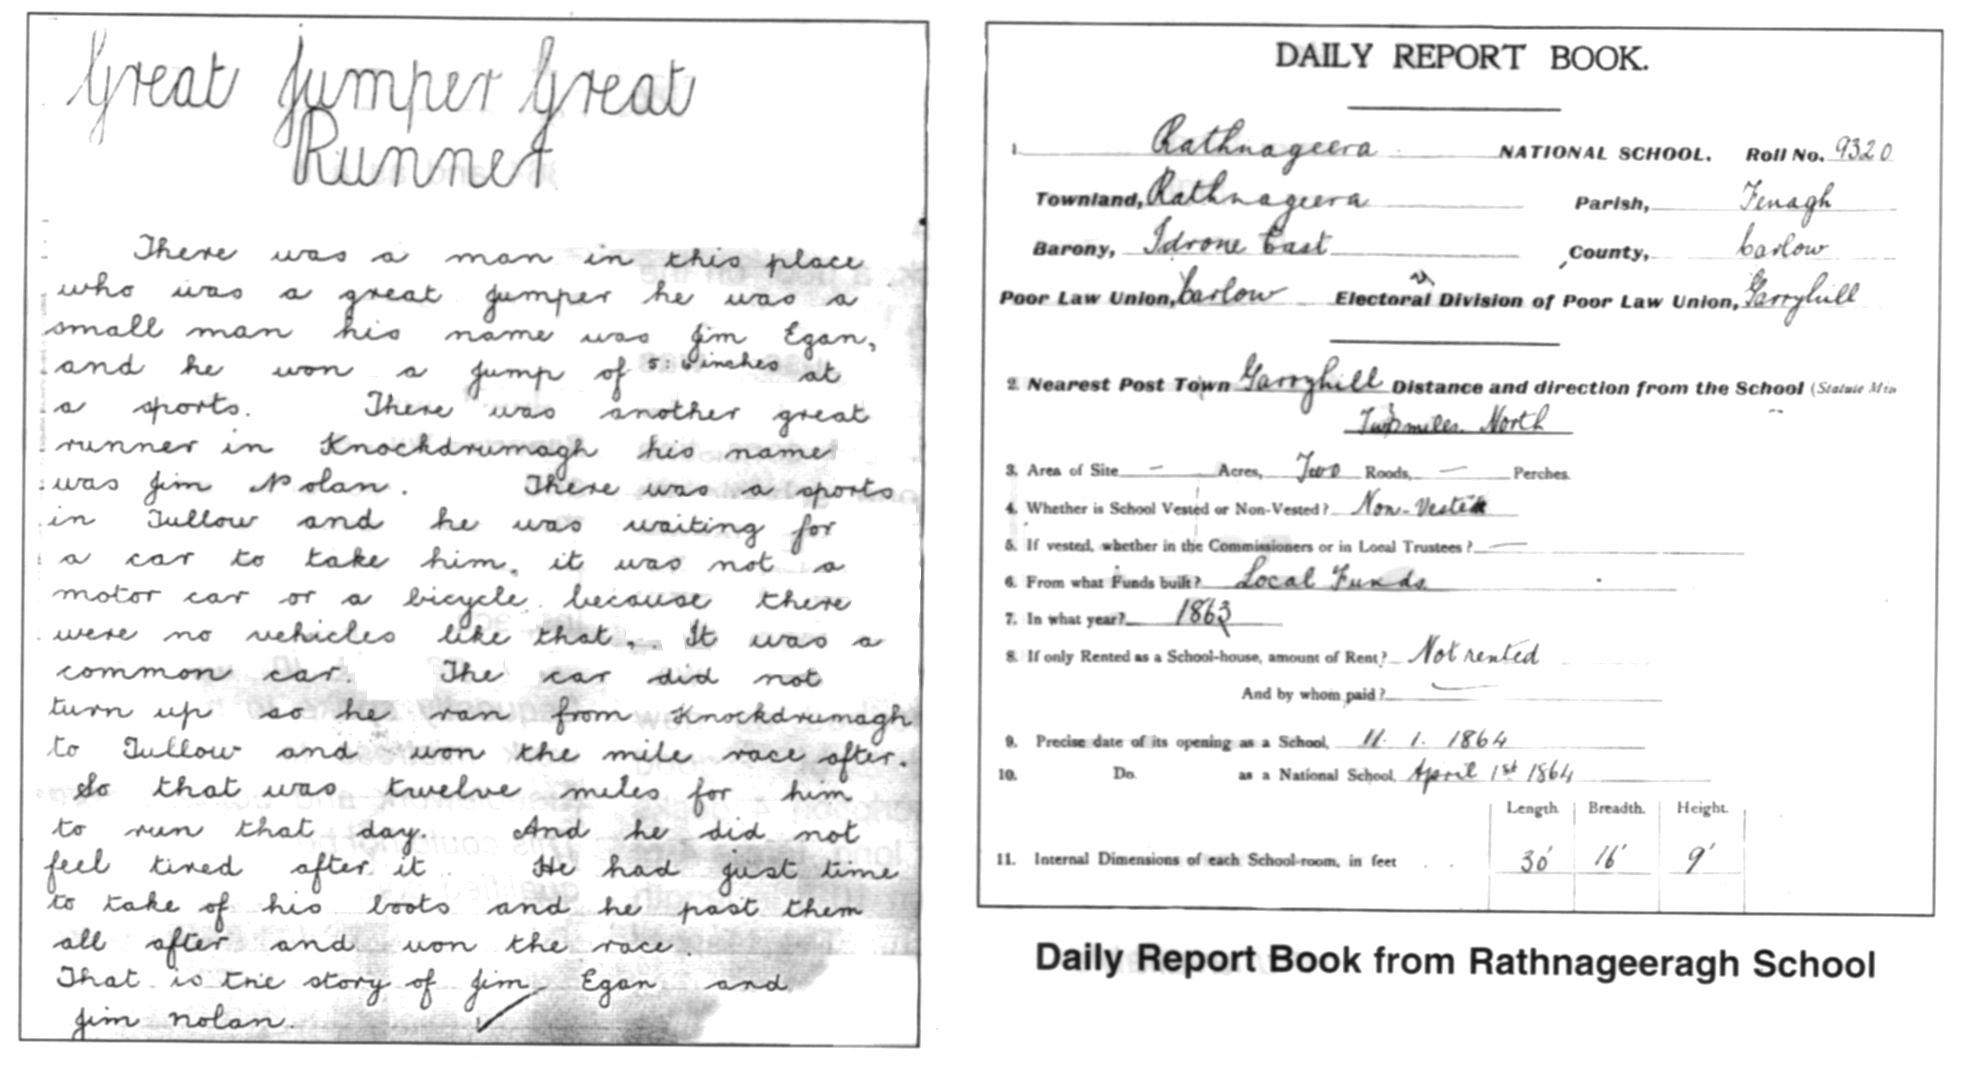 Great Jumper Great
Runner
There was a man in this place
who was a great jumper he was a
small man his name was Jim Egan,
and he won a jump of 5:6 inches at
a sports. There was another great
runner in Knockdrumagh his name
was Jim Nolan. There was a sports
in Tullow and he was waiting for
a car to take him, it was not a
motor car or a bicycle because there
were no vehicles like that, It was a
common car. The car did not
turn up so he ran from Knockdrumagh
to Tullow and won the mile race after.
So that was twelve miles for him
to run that day. And he did not
feel tired after it He had just time
to take of his boots and he past them
all after and won the race.
That is the story of Jim Egan and
Jim nolan.
DAILY REPORT BOOK.
1. Rathnageera NATIONAL SCHOOL. Roll No. 9320
Townland, Rathnageera Parish, Fenagh
Barony, Idrone East County, Carlow
Poor Law Union, Carlow Electoral Division of Poor Law Union, Garryhill
2. Nearest Post Town Garryhill Distance and direction from the School (Statute
Two miles. North
3. Area of Site — Acres, Two Roods, — Perches.
4. Whether is School Vested or Non-Vested? Non-Vested
5. If vested, whether in the Commissioners or in Local Trustees? —
6. From what Funds built? Local Funds
7. In what year? 1863
8. If only Rented as a School-house, amount of Rent? Not rented
And by whom paid? —
9. Precise date of its opening as a School, 11. 1. 1864
10. Do. as a National School, April 1st 1864
Length. Breadth. Height.
11. Internal Dimensions of each School-room, in feet . . 30' 16' 9'
Daily Report Book from Rathnageeragh School